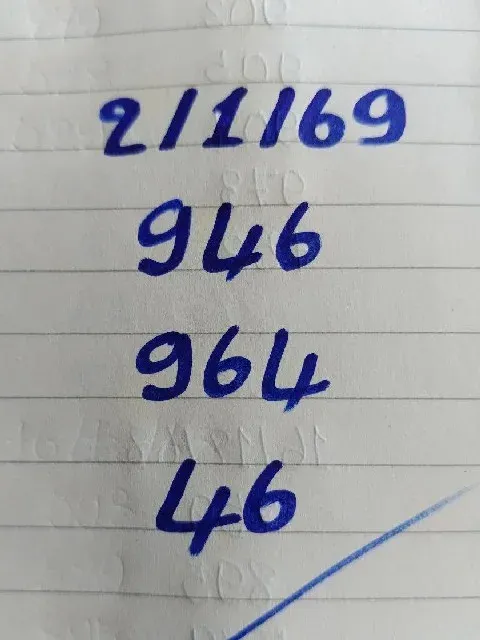 2/1/69
946
964
46